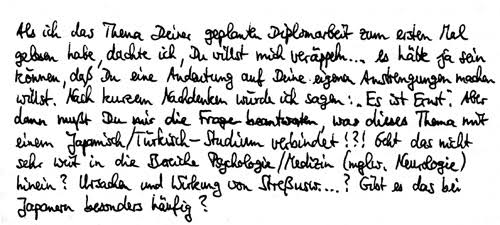 Als ich das Thema Deiner geplanten Diplomarbeit zum ersten Mal
gelesen habe, dachte ich, Du willst mich veräppeln... es hätte ja sein
können, daß Du eine Andeutung auf Deine eigenen Anstrengungen machen
willst. Nach kurzem Nachdenken würde ich sagen: „Es ist Ernst". Aber
dann mußt Du mir die Frage beantworten, was dieses Thema mit
einem Japanisch/Türkisch-Studium verbindet!?! Geht das nicht
sehr weit in die Bereiche Psychologie/Medizin (mglw. Neurologie)
hinein? Ursachen und Wirkung von Streßusw....? Gibt es das bei
Japanern besonders häufig?